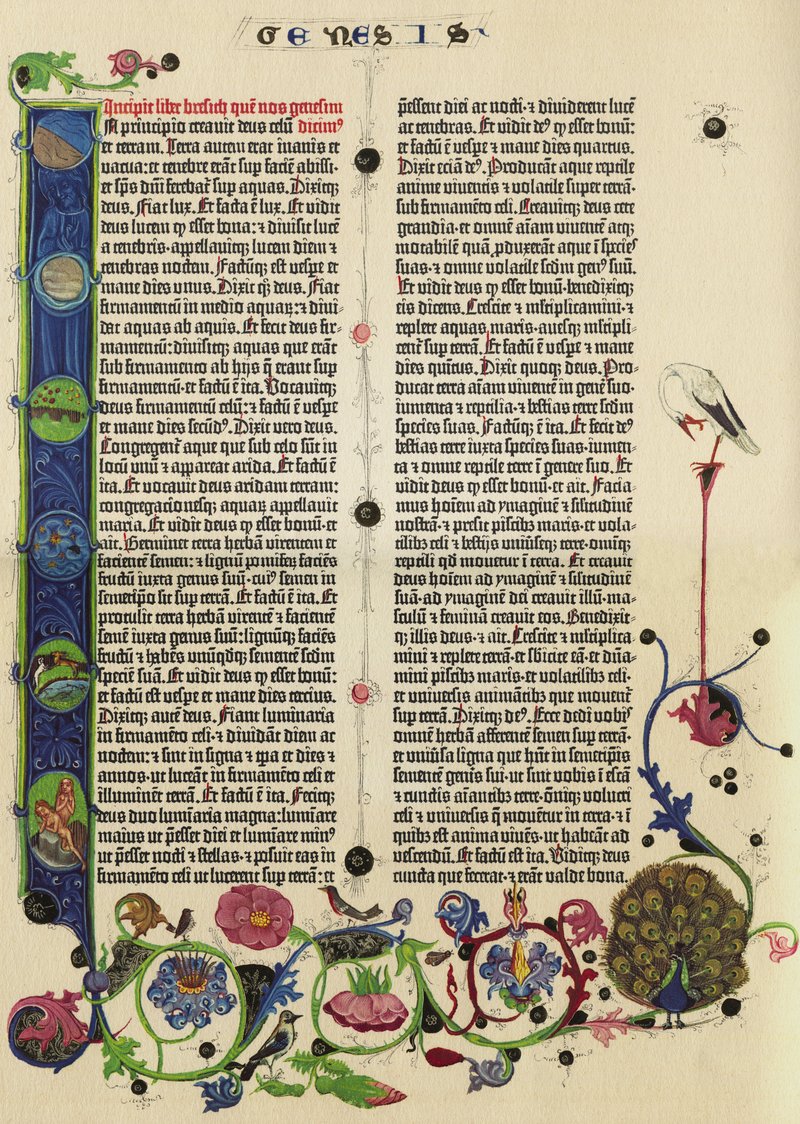 GENESIS
Incipit liber bresich quē nos genesim
In principio creavit deus celū dicim⁹
et terram. Terra autem erat inanis et
vacua: et tenebre erāt sup faciē abissi·
et sp̄s dn̄i ferebat sup aquas. Dixitqꝫ
deus. Fiat lux. Et facta ē lux. Et vidit
deus lucem ꝙ esset bona: ⁊ divisit lucē
a tenebris· appellavitqꝫ lucem diem ⁊
tenebras noctem. Factūqꝫ est vespe et
mane dies unus. Dixit qꝫ deus. Fiat
firmamentū in medio aquaꝝ: ⁊ divi⸗
dat aquas ab aquis. Et fecit deus fir⸗
mamentū: divisitqꝫ aquas que erāt
sub firmamento ab hijs q̄ erant sup
firmamentū· et factū ē ita. Vocavitqꝫ
deus firmamentū celū: ⁊ factū ē vespe
et mane dies secūd⁹. Dixit vero deus.
Congregent aque que sub celo sūt in
locū unū ⁊ appareat arida. Et factū ē
ita. Et vocavit deus aridam terram:
congregacionesqꝫ aquaꝝ appellavit
maria. Et vidit deus ꝙ esset bonū· et
ait. Germinet terra herbā virentem et
facientē semen: ⁊ lignū pomiferū faciēs
fructū iuxta genus suū· cui⁹ semen in
semetipo sit sup terrā. Et factū ē ita. Et
protulit terra herbā virentē ⁊ facientē
semē iuxta genus suū: lignūqꝫ faciēs
fructū ⁊ habēs unūqdqꝫ sementē scdm
speciē suā. Et vidit deus ꝙ esset bonū:
et factū est vespe et mane dies tercius.
Dixitqꝫ autē deus. Fiant luminaria
in firmamēto celi· ⁊ dividāt diem ac
noctem: ⁊ sint in signa ⁊ tpa et dies ⁊
annos· ut luceāt in firmamēto celi et
illuminēt terrā. Et factū ē ita. Fecitqꝫ
deus duo luminaria magna: lumīare
maius ut pesset diei et lumīare min⁹
ut pesset nocti ⁊ stellas· ⁊ posuit eas in
firmamēto celi ut lucerent sup terrā: et
pessent diei ac nocti· ⁊ dividerent lucē
ac tenebras. Et vidit de⁹ ꝙ esset bonū:
et factū ē vespe ⁊ mane dies quartus.
Dixit eciā de⁹. Producāt aque reptile
anime viventis ⁊ volatile super terrā·
sub firmamēto celi. Creavitqꝫ deus cete
grandia· et omnē aīam viventē atqꝫ
motabilē quā pduxerāt aque ī species
suas· ⁊ omne volatile scdm gen⁹ suū.
Et vidit deus ꝙ esset bonū· benedixitqꝫ
eis dicens. Crescite ⁊ mltiplicamini· ⁊
replete aquas maris· avesqꝫ mltipli⸗
cent sup terrā. Et factū ē vespe ⁊ mane
dies quītus. Dixit quoqꝫ deus. Pro⸗
ducat terra aīam viventē in genē suo·
iumenta ⁊ reptilia· ⁊ bestias terre scdm
species suas. Factūqꝫ ē ita. Et fecit de⁹
bestias terre iuxta species suas· iumen⸗
ta ⁊ omne reptile terre ī genere suo. Et
vidit deus ꝙ esset bonū· et ait. Facia⸗
mus hoīem ad ymaginē ⁊ silitudinē
nostrā· ⁊ presit piscibꝫ maris· et vola⸗
tilibꝫ celi ⁊ bestijs univseqꝫ terre· omniqꝫ
reptili qd movetur ī terra. Et creavit
deus hoīem ad ymaginē ⁊ silitudinē
suā· ad ymaginē dei creavit illū· ma⸗
sculū ⁊ feminā creavit eos. Benedixit⸗
qꝫ illis deus· ⁊ ait. Crescite ⁊ mltiplica⸗
mini ⁊ replete terrā· et sbicite eā· et dn̄a⸗
mini piscibꝫ maris· et volatilibꝫ celi·
et universis animātibꝫ que movent
sup terrā. Dixitqꝫ de⁹. Ecce dedi vobis
omnē herbā afferentē semen sup terrā·
et univsa ligna que hn̄t in semetipis
sementē genis sui· ut sint vobis ī escā
⁊ cunctis aīantibꝫ terre· oīqꝫ volucri
celi ⁊ universis q̄ moventur in terra· ⁊ ī
quibꝫ est anima vivēs· ut habeāt ad
vescendū. Et factū est ita. Viditqꝫ deus
cuncta que fecerat· ⁊ erāt valde bona.